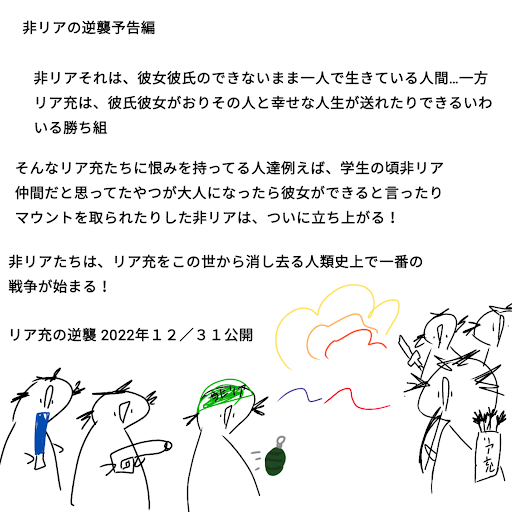 非リアの逆襲予告編
非リアそれは、彼女彼氏のできないまま一人で生きている人間…一方
リア充は、彼氏彼女がおりその人と幸せな人生が送れたりできるいわ
いる勝ち組
そんなリア充たちに恨みを持ってる人達例えば、学生の頃非リア
仲間だと思ってたやつが大人になったら彼女ができると言ったり
マウントを取られたりした非リアは、ついに立ち上がる！
非リアたちは、リア充をこの世から消し去る人類史上で一番の
戦争が始まる！
リア充の逆襲 2022年１２／３１公開
リア充